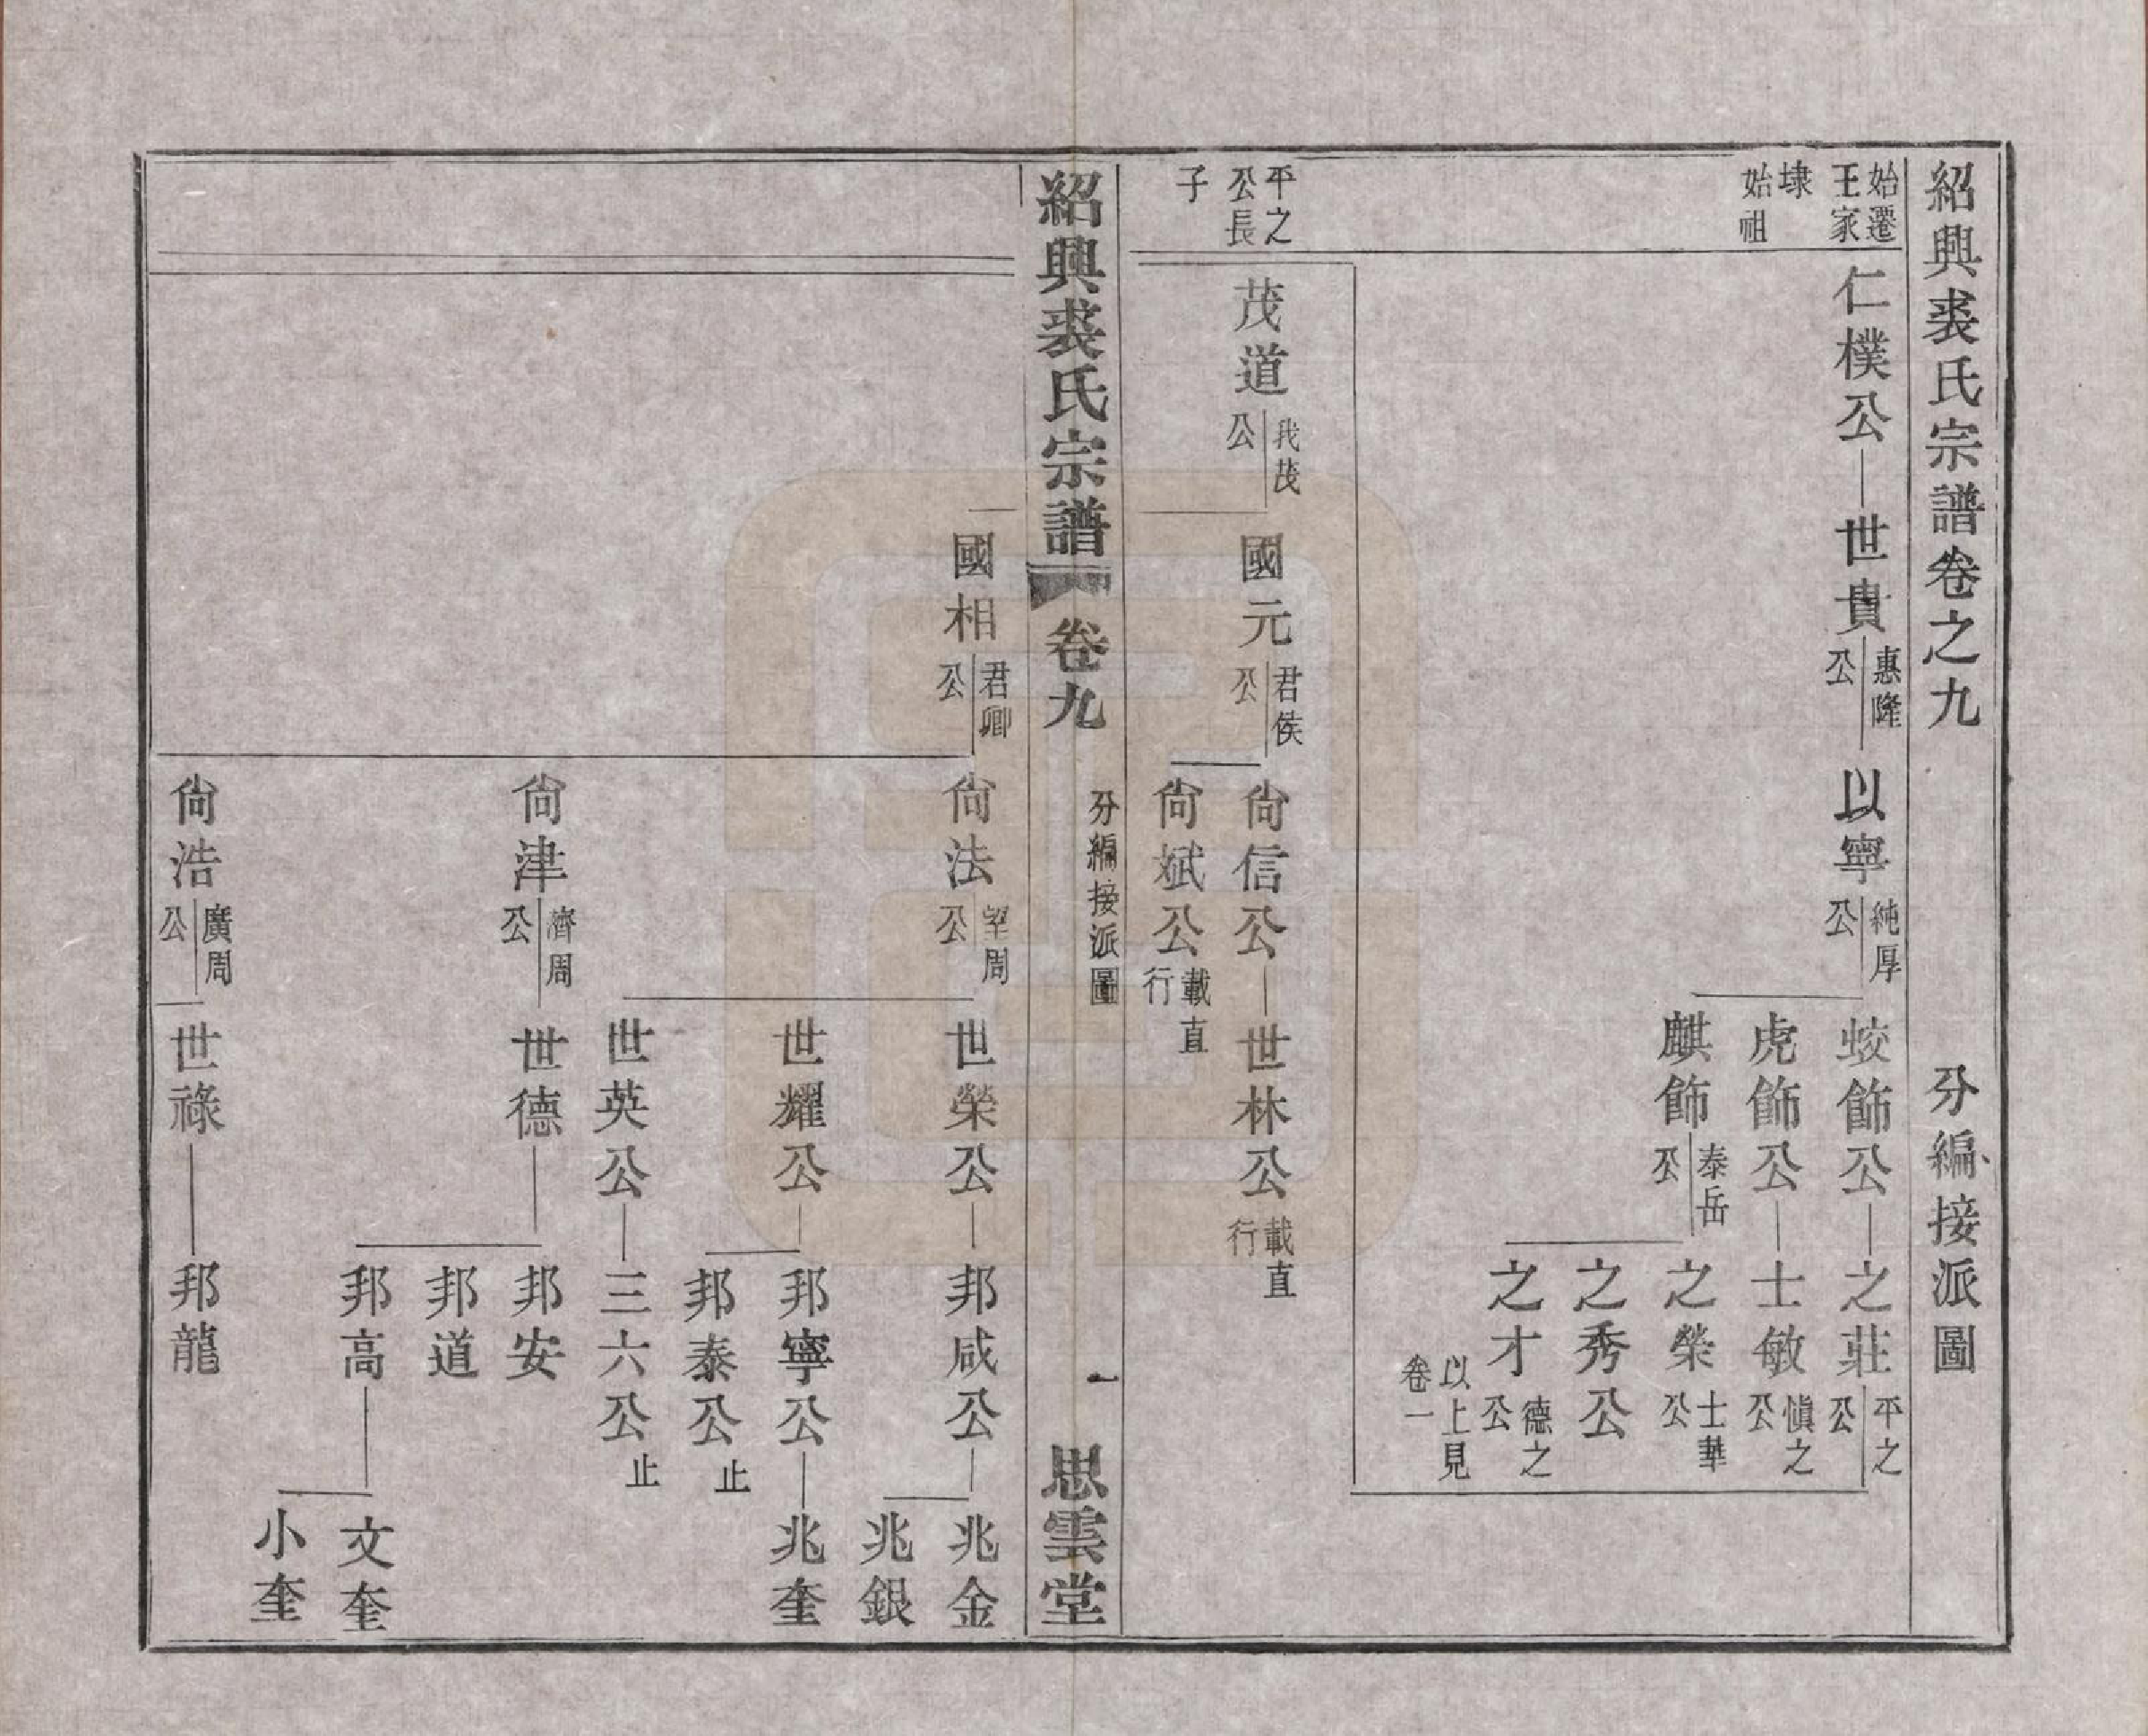 紹興裘氏宗譜卷之九 分編接派圖
始遷
王家
埭
始祖
仁樸公 世貴 惠隆公 以寧 純厚公
蛟飾公 之莊 平之公
虎飾公 士敏 愼之公
麒飾 泰岳公 之榮 士華公
之秀公
之才 德之公
以上見
卷一
平之
公長
子
茂道 我茂公 國元 君侯公 尙信公 世林公 載直行
尙斌公 載直行
紹興裘氏宗譜 卷九 分編接派圖 一 思雲堂
國相 君卿公 尙法 望周公 世榮公 邦咸公 兆金
兆銀
世耀公 邦寧公 兆奎
邦泰公 止
世英公 三六公 止
尙津 濟周公 世德 邦安
邦道
邦高 文奎
小奎
尙浩 廣周公 世祿 邦龍